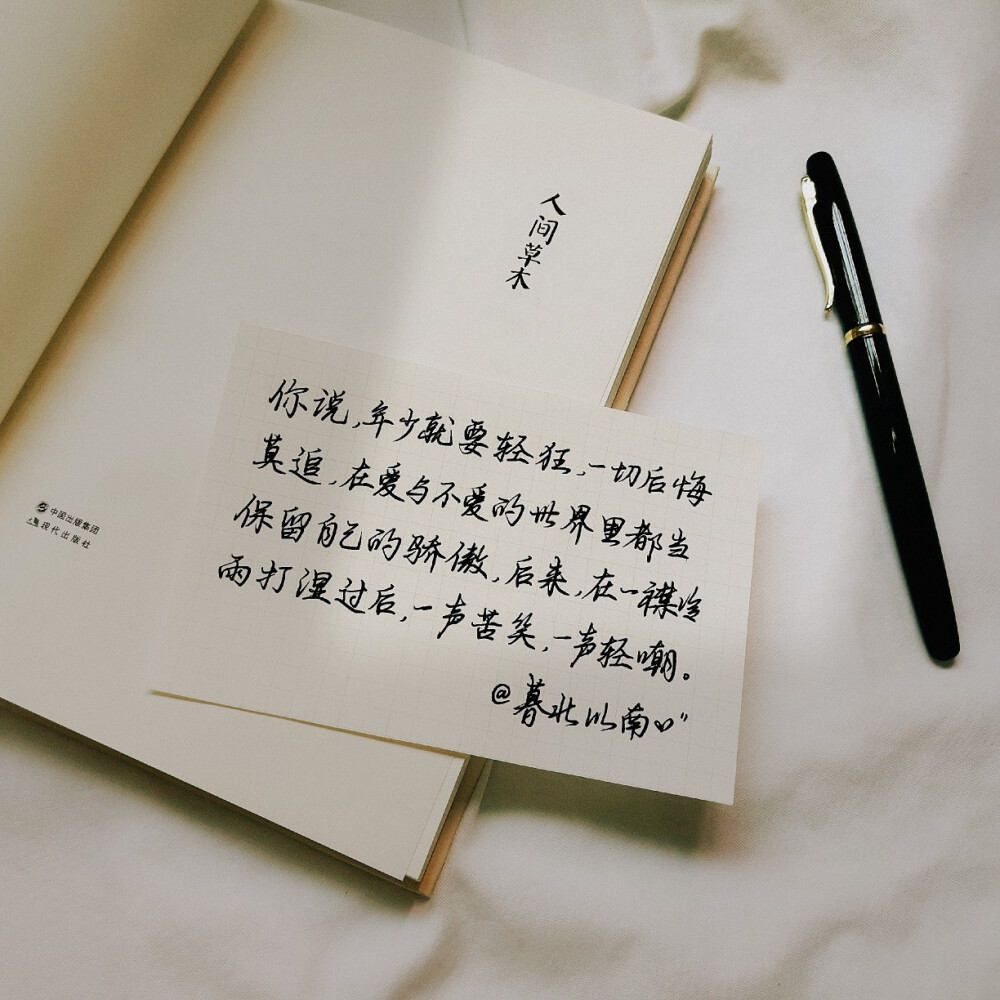 人间草木
你说,年少就要轻狂,一切后悔
莫追,在爱与不爱的世界里都当
保留自己的骄傲,后来,在一襟冷
雨打湿过后,一声苦笑,一声轻嘲。
@暮北以南
中国出版集团
现代出版社